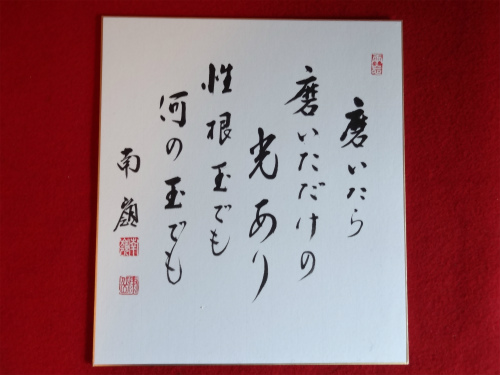 磨いたら
磨いただけの
光あり
性根玉でも
何の玉でも
南嶺